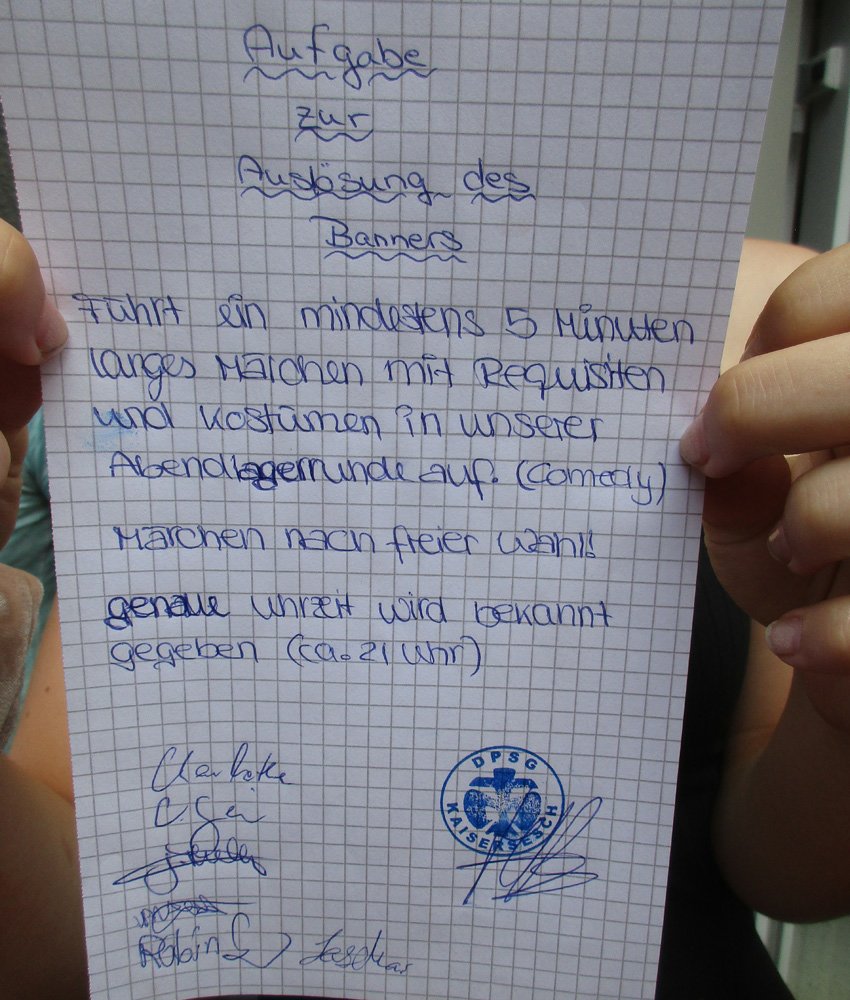 Aufgabe
zur
Auslösung des
Banners
Führt ein mindestens 5 Minuten
langes Märchen mit Requisiten
und Kostümen in unserer
Abendlagerrunde auf. (Comedy)
Märchen nach freier Wahl!
genaue Uhrzeit wird bekannt
gegeben (ca. 21 Uhr)
DPSG
KAISERSESCH
Robin